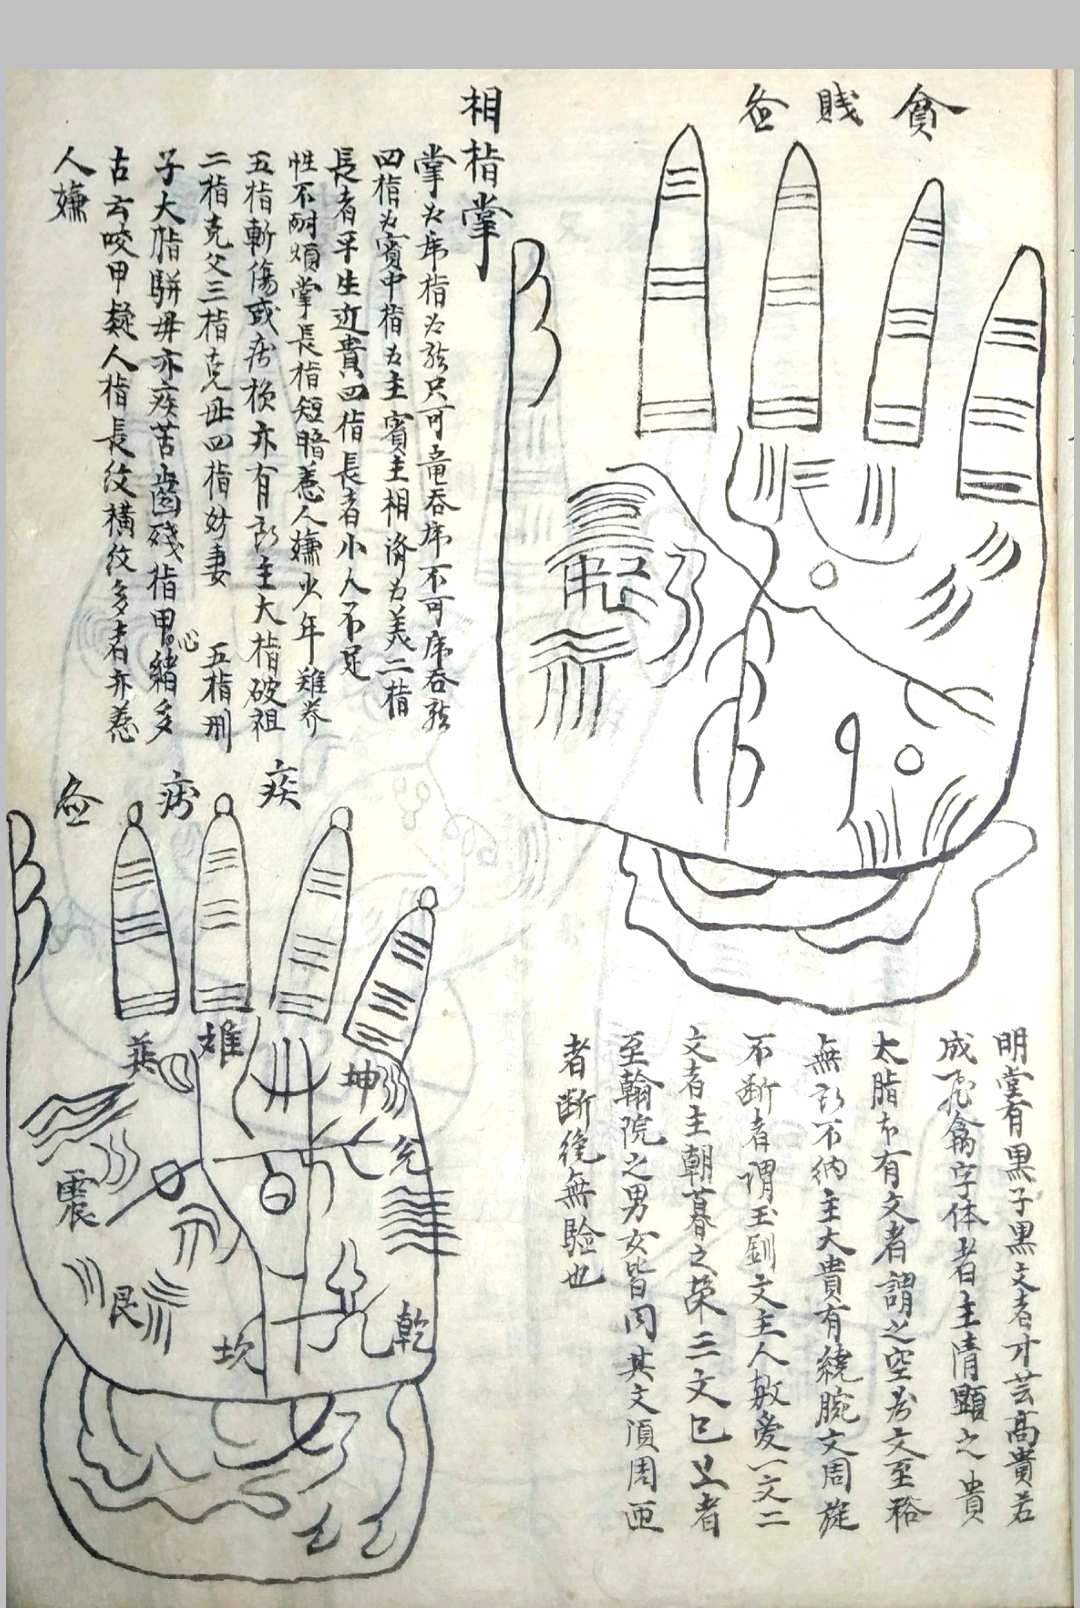 貧賤
明堂有黑子黑文者才芸高貴若
成飛禽字体者主清顯之貴
太脂本有文者謂之空房文至裕
無不納主大貴有繞腕文周旋
不断者謂玉釧文主人敬愛一文二
文者主朝暮之榮三文已上者
至翰院之男女皆同其文湏周匝
者断絶無驗也
相指掌
掌为虎指为龙只可竜吞虎不可虎吞龙
四指为賓中指为主賓主相済为美二指
長者平生近貴四指長者小人不足
性不耐煩掌長指短暗惹人嫌少年難养
五指斬傷或病損亦有主大指破祖
二指克父三指克毋四指妨妻五指刑
子大脂駢毋亦疾苦齒殘指甲心緒多
古云咬甲疑人指長紋横紋多者亦惹
人嫌
疾病
巽
離
坤
兑
震
艮
坎
乾